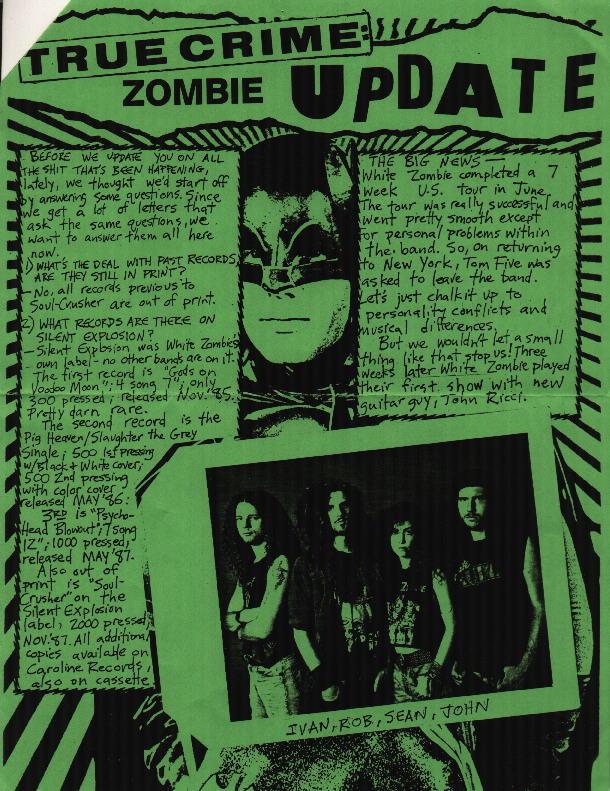 TRUE CRIME:
ZOMBIE UPDATE
BEFORE WE UPDATE YOU ON ALL
THE SHIT THAT'S BEEN HAPPENING,
lately, we thought we'd start off
by answering some questions. Since
we get a lot of letters that
ask the same questions, we
want to answer them all here
now.
1) WHAT'S THE DEAL WITH PAST RECORDS,
ARE THEY STILL IN PRINT?
- No, all records previous to
Soul-Crusher are out of print.
2) WHAT RECORDS ARE THERE ON
SILENT EXPLOSION?
- Silent Explosion was White Zombie's
own label - no other bands are on it.
The first record is "Gods on
Voodoo Moon"; 4 song 7"; only
300 pressed; released Nov. '85.
Pretty darn rare.
The second record is the
Pig Heaven/Slaughter the Grey
Single; 500 1st pressing
w/Black + White cover;
500 2nd pressing
with color cover;
released MAY '86.
3RD is "Psycho-
Head Blowout"; 7 song
12"; 1000 pressed;
released MAY '87.
Also out of
print is "Soul-
Crusher" on the
Silent Explosion
label; 2000 pressed;
NOV. '87. All additional
copies available on
Caroline Records,
also on cassette
THE BIG NEWS —
White Zombie completed a 7
week U.S. tour in June.
The tour was really successful and
went pretty smooth except
for personal problems within
the band. So, on returning
to New York, Tom Five was
asked to leave the band.
Let's just chalk it up to
personality conflicts and
musical differences.
But we wouldn't let a small
thing like that stop us! Three
weeks later White Zombie played
their first show with new
guitar guy, John Ricci.
IVAN, ROB, SEAN, JOHN